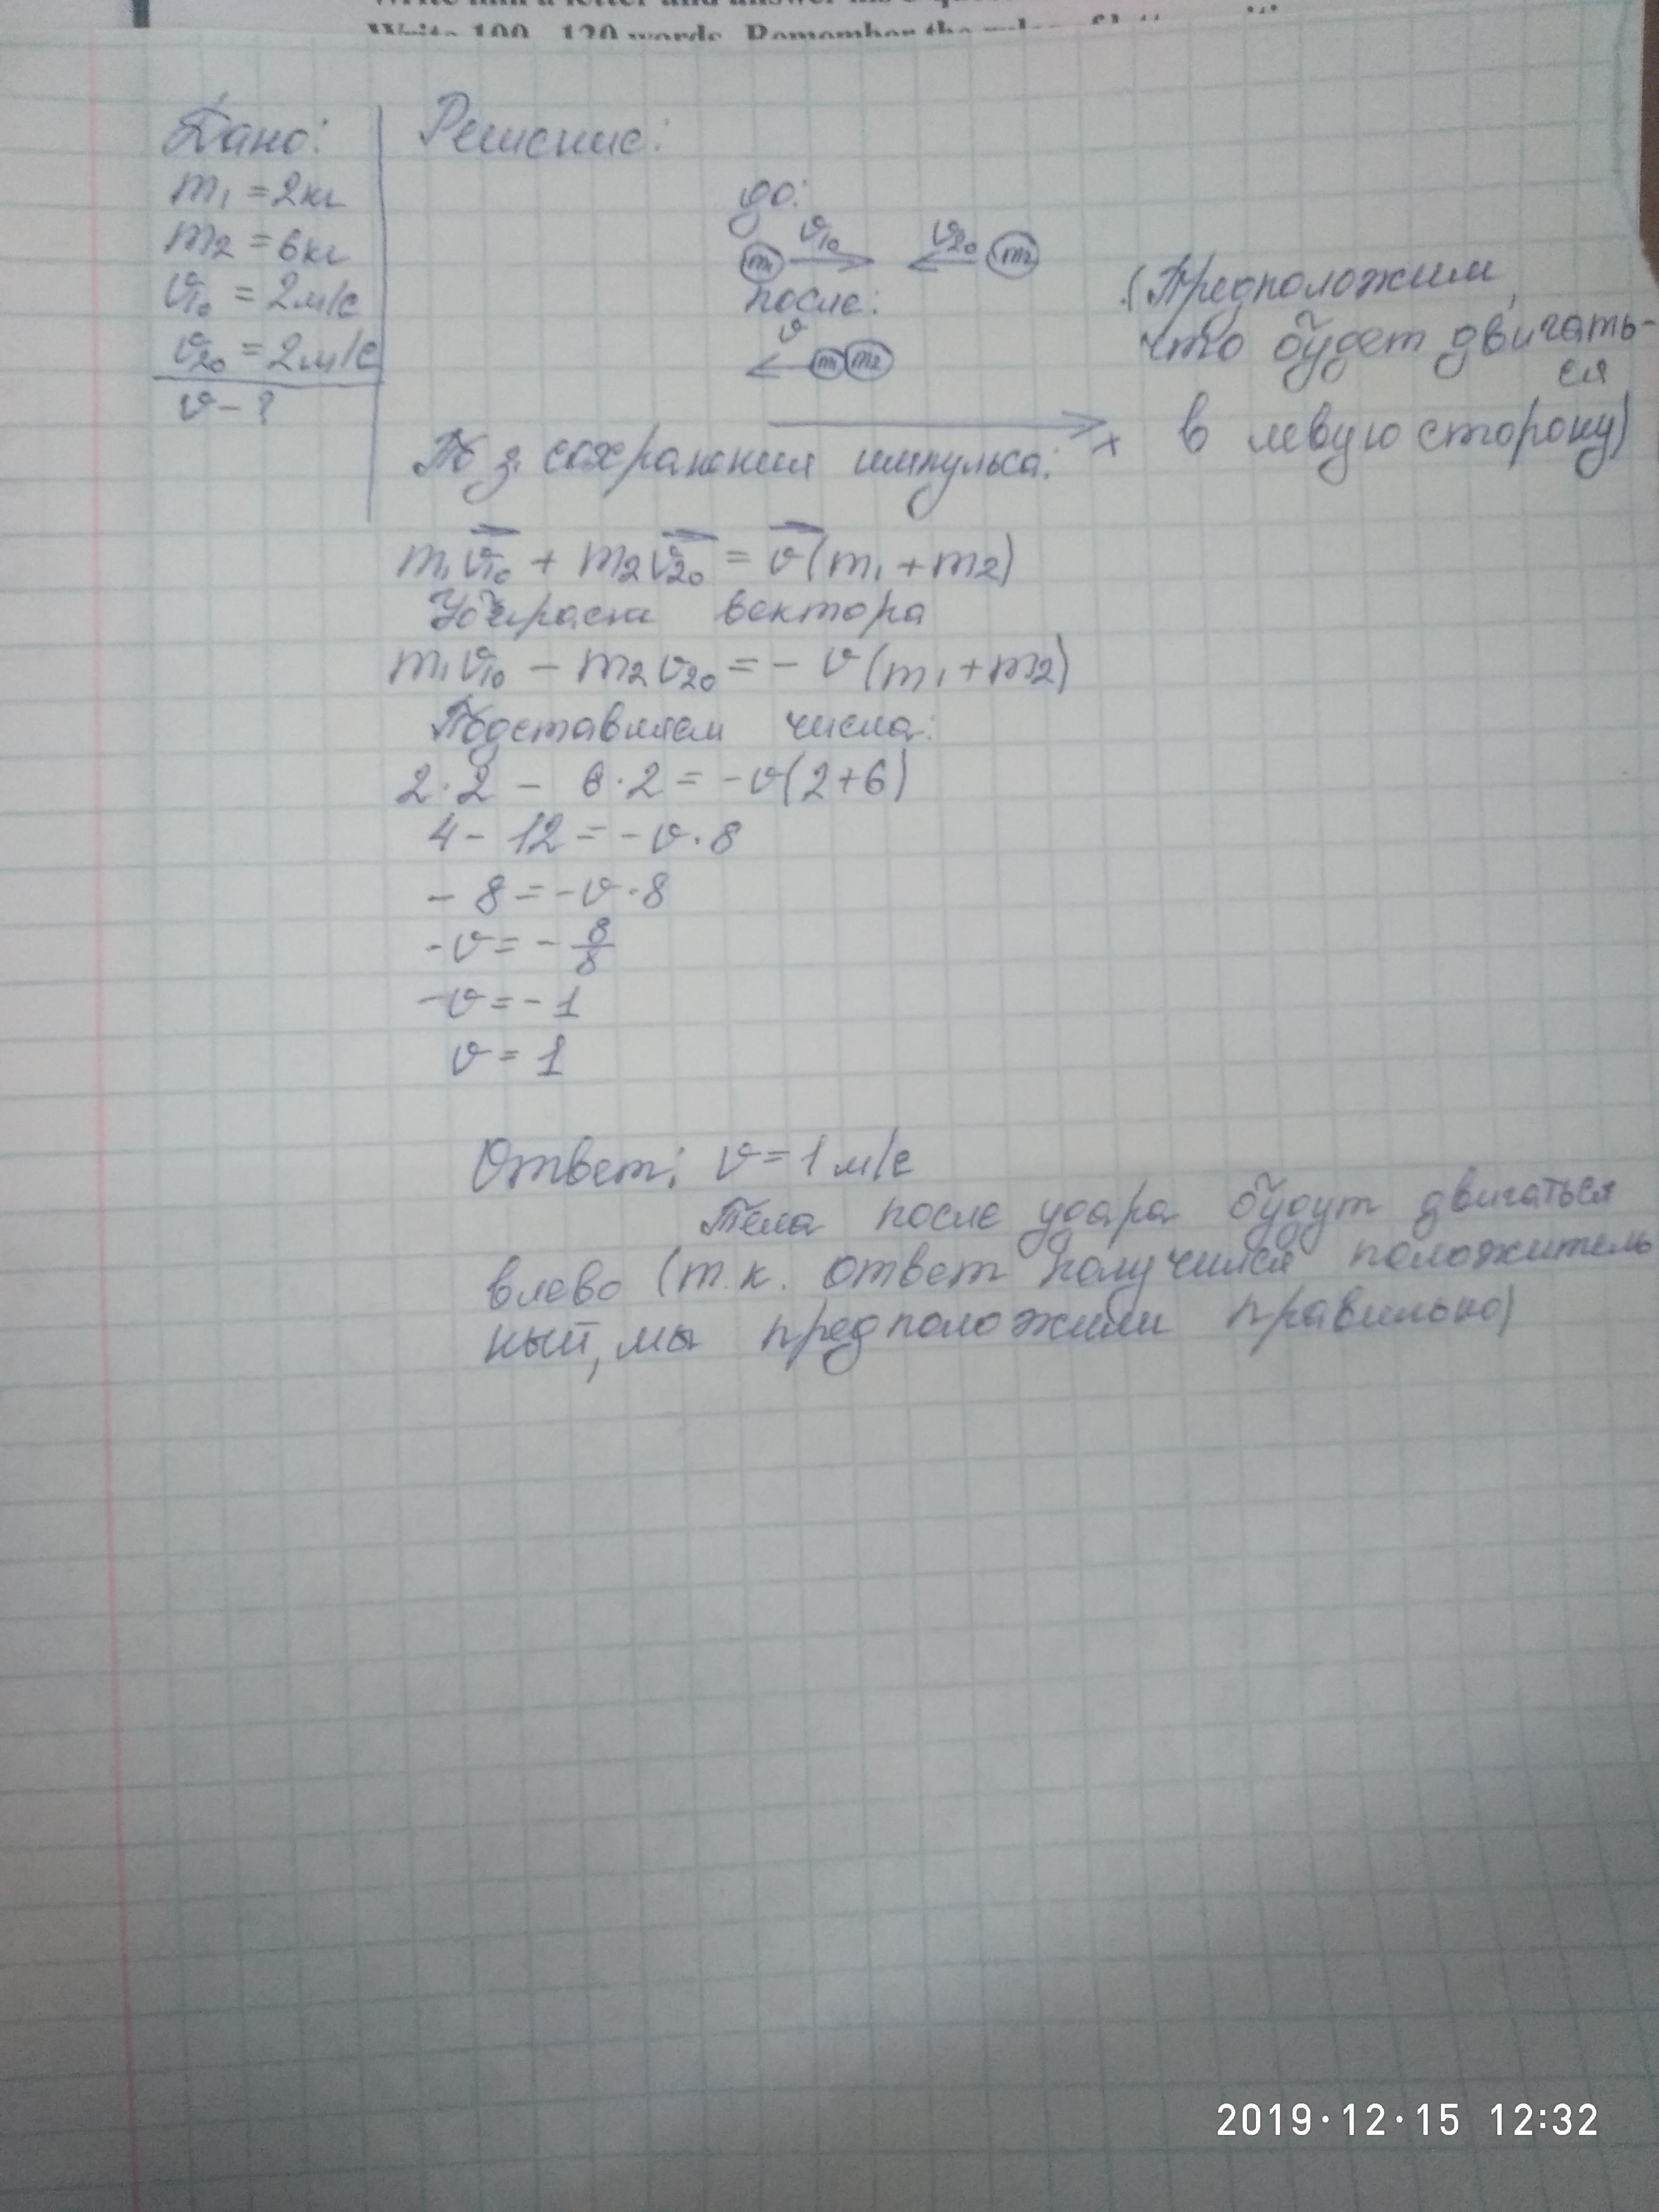 Write 100 - 120 words. Remember the rules of letter
Дано:
m₁ = 2кг
m₂ = 6кг
v₁₀ = 2м/с
v₂₀ = 2м/с
v - ?
Решение:
до:
v₁₀ v₂₀
m₁ m₂
после:
v
m₁ m₂
x
(Предположим,
что будет двигать-
ся
в левую сторону)
По з. сохранения импульса:
m₁v⃗₁₀ + m₂v⃗₂₀ = v⃗(m₁ + m₂)
Убираем вектора
m₁v₁₀ - m₂v₂₀ = - v(m₁ + m₂)
Подставляем числа:
2·2 - 6·2 = -v(2+6)
4 - 12 = -v·8
- 8 = -v·8
-v = - 8/8
-v = - 1
v = 1
Ответ: v = 1 м/с
Тела после удара будут двигаться
влево (т.к. ответ получился положитель
ный, мы предположили правильно)
2019·12·15 12:32